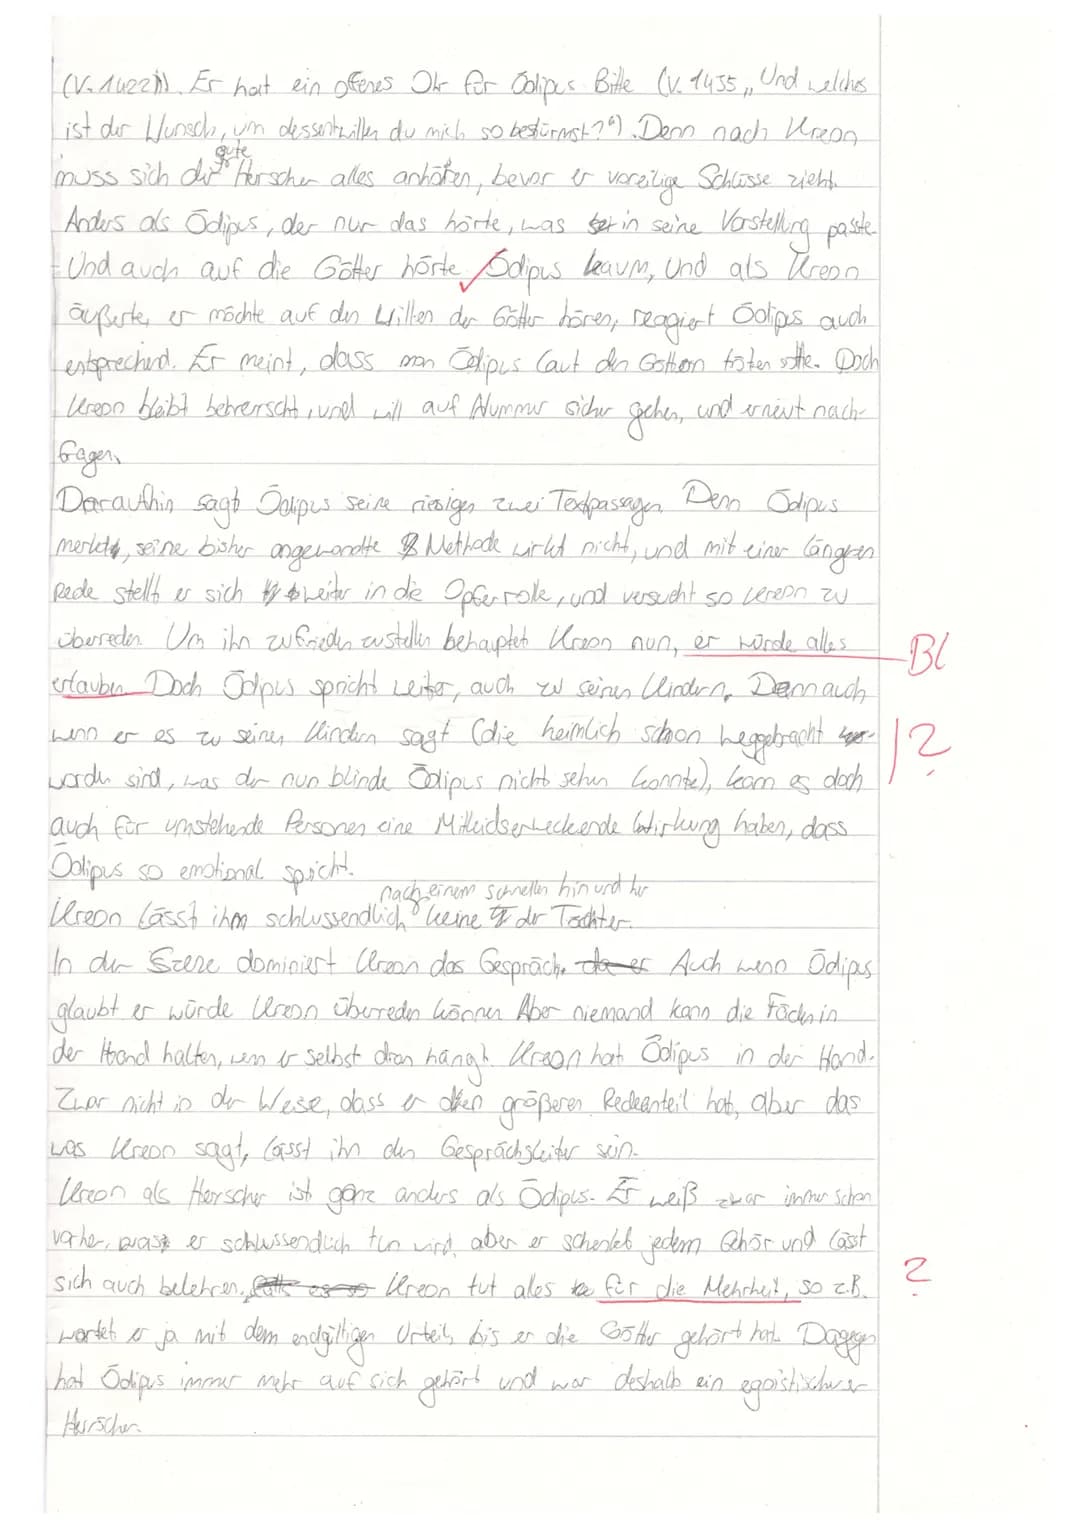 (V. 1422ff). Er hat ein offenes Ohr für Ödipus Bitte (V. 1435 „Und welches
ist der Wunsch, um dessentwillen du mich so bestürmst?"). Denn nach Kreon
muss sich der gute Herscher alles anhören, bevor er voreilige Schlüsse zieht.
Anders als Ödipus, der nur das hörte, was in seine Vorstellung passte.
Und auch auf die Götter hörte Ödipus kaum, Und als Kreon
äußerte, er möchte auf den Willen der Götter hören, reagiert Ödipus auch
entsprechend. Er meint, dass man Ödipus laut den Göttern töten sollte. Doch
Kreon bleibt beherrscht, und will auf Nummer sicher gehen, und erneut nach-
fragen.
Daraufhin sagt Ödipus seine riesigen zwei Textpassagen. Denn Ödipus
merkt, seine bisher angewandte Methode wirkt nicht, und mit einer längeren
Rede stellt er sich weiter in die Opferrolle, und versucht so Kreon zu
überreden. Um ihn zufrieden zustellen behauptet Kreon nun, er würde alles
erlauben. Doch Ödipus spricht weiter, auch zu seinen Kindern. Denn auch
wenn er es zu seinen Kindern sagt (die heimlich schon weggebracht
worden sind, was der nun blinde Ödipus nicht sehen konnte), kann es doch
auch für umstehende Personen eine Mitleidserweckende Wirkung haben, dass
Ödipus so emotional spricht.
Kreon lässt ihm schlussendlich nach einem schnellen hin und her keine der Töchter.
In der Szene dominiert Kreon das Gespräch. Auch wenn Ödipus
glaubt er würde Kreon überreden können. Aber niemand kann die Fäden in
der Hand halten, wenn er selbst dran hängt. Kreon hat Ödipus in der Hand.
Zwar nicht in der Weise, dass er den größeren Redeanteil hat, aber das
was Kreon sagt, lässt ihn den Gesprächsleiter sein.
Kreon als Herrscher ist ganz anders als Ödipus. Er weiß zwar immer schon
vorher, was er schlussendlich tun wird, aber er schenkt jedem Gehör und lässt
sich auch belehren. Kreon tut alles für die Mehrheit, so z.B.
wartet er ja mit dem endgültigen Urteil, bis er die Götter gehört hat. Dagegen
hat Ödipus immer mehr auf sich gehört und war deshalb ein egoistischer
Herrscher.
Bl
?
?